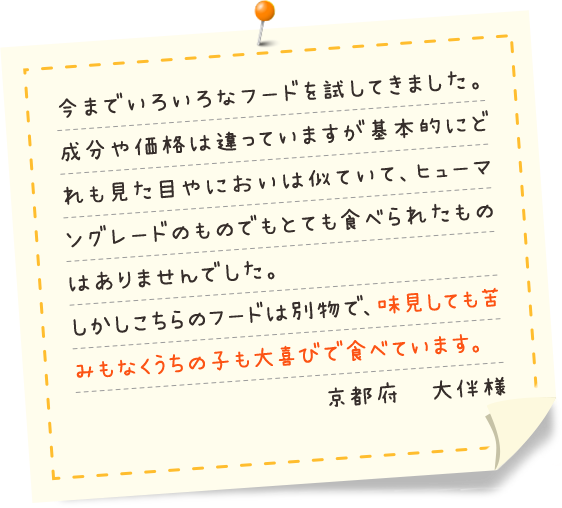 今までいろいろなフードを試してきました。
成分や価格は違っていますが基本的にど
れも見た目やにおいは似ていて、ヒューマ
ングレードのものでもとても食べられたもの
はありませんでした。
しかしこちらのフードは別物で、味見しても苦
みもなくうちの子も大喜びで食べています。
京都府 大伴様